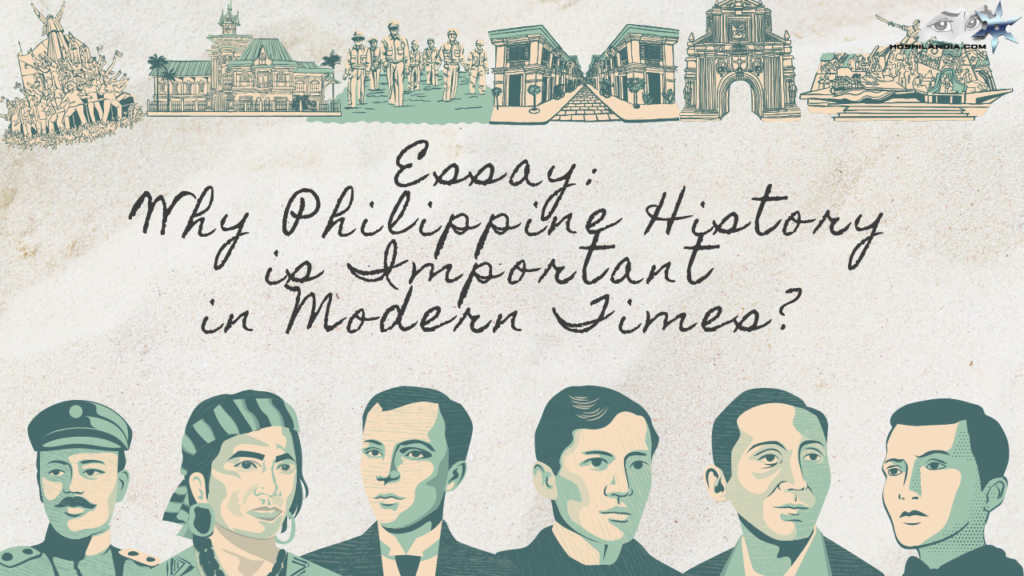 HOSHILANDIA.COM
Essay:
Why Philippine History
is Important
in Modern Times?